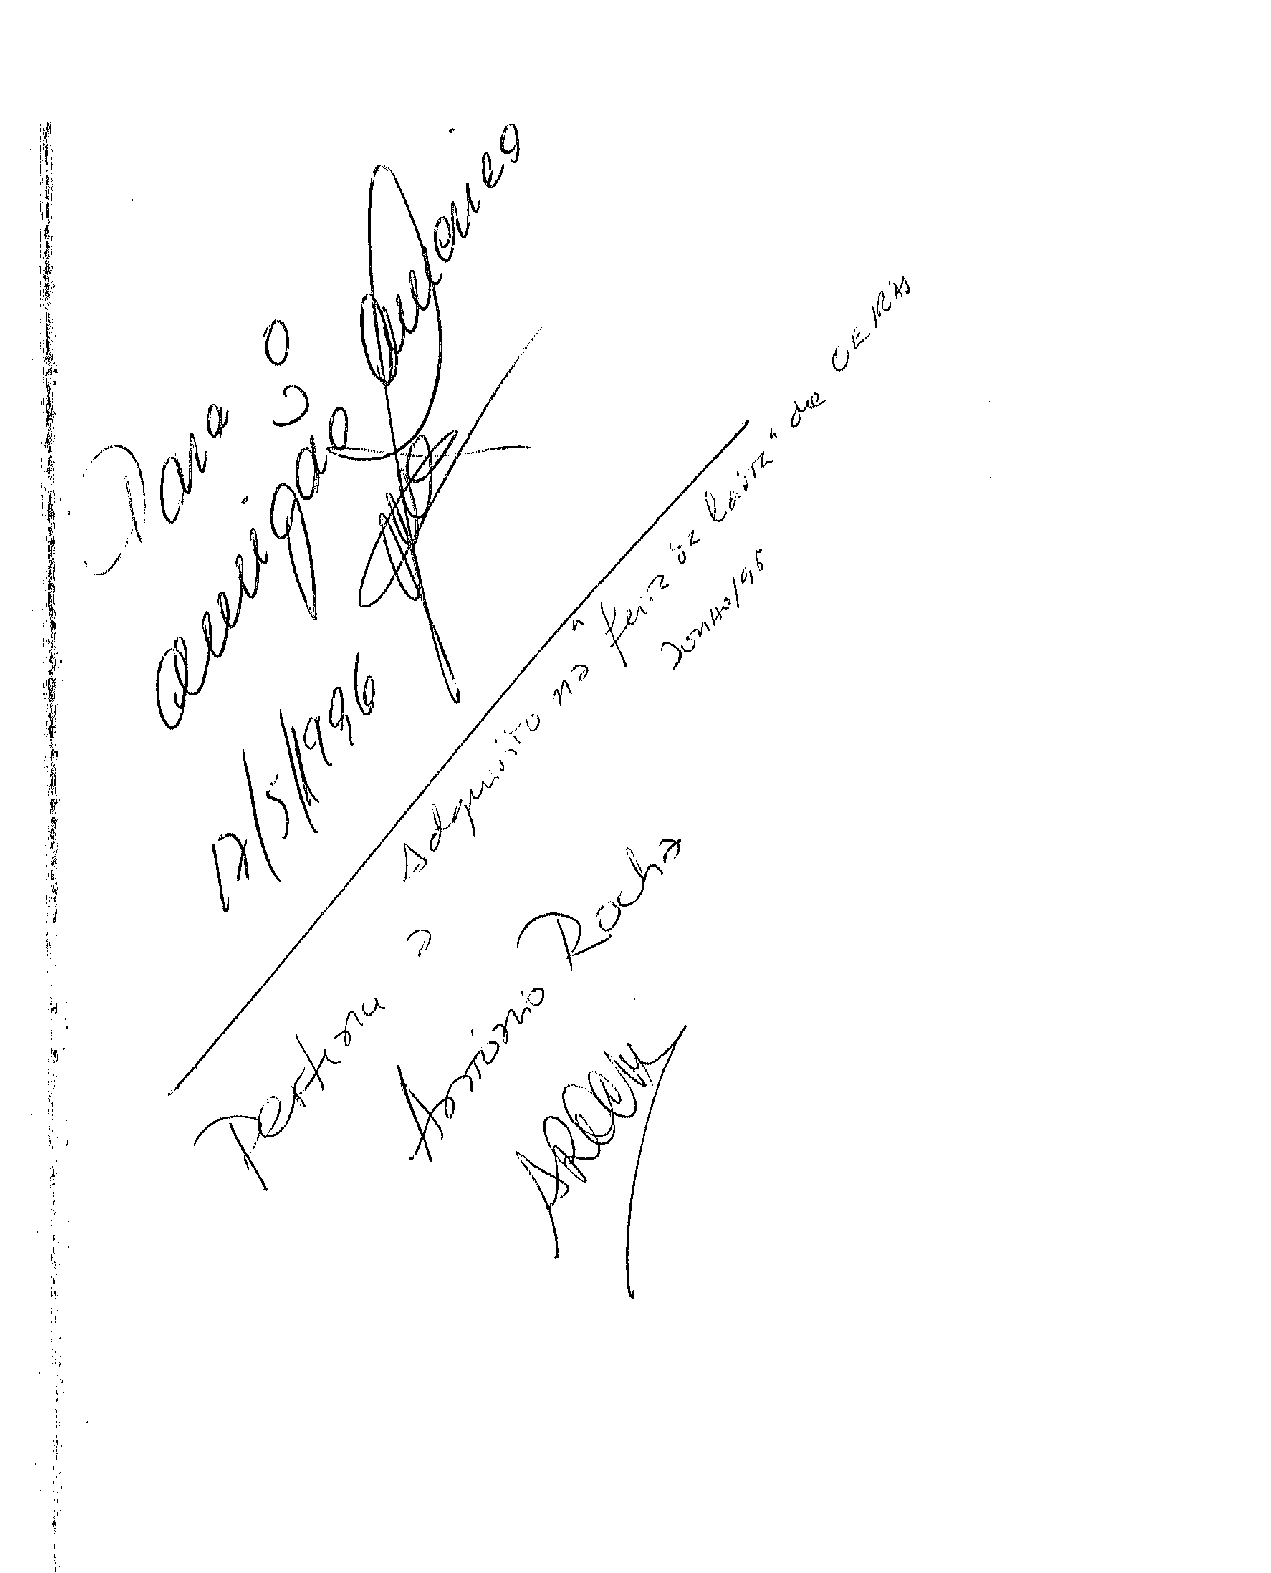 Para o
amigão António
12/5/1996
Adquirido na "feira da ladra" de OEIRAS
JUNHO/95
Pertence a
António Rocha